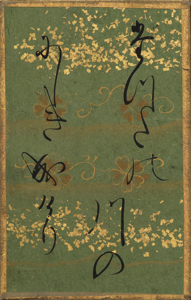 たつたの川の
にしきなりけり